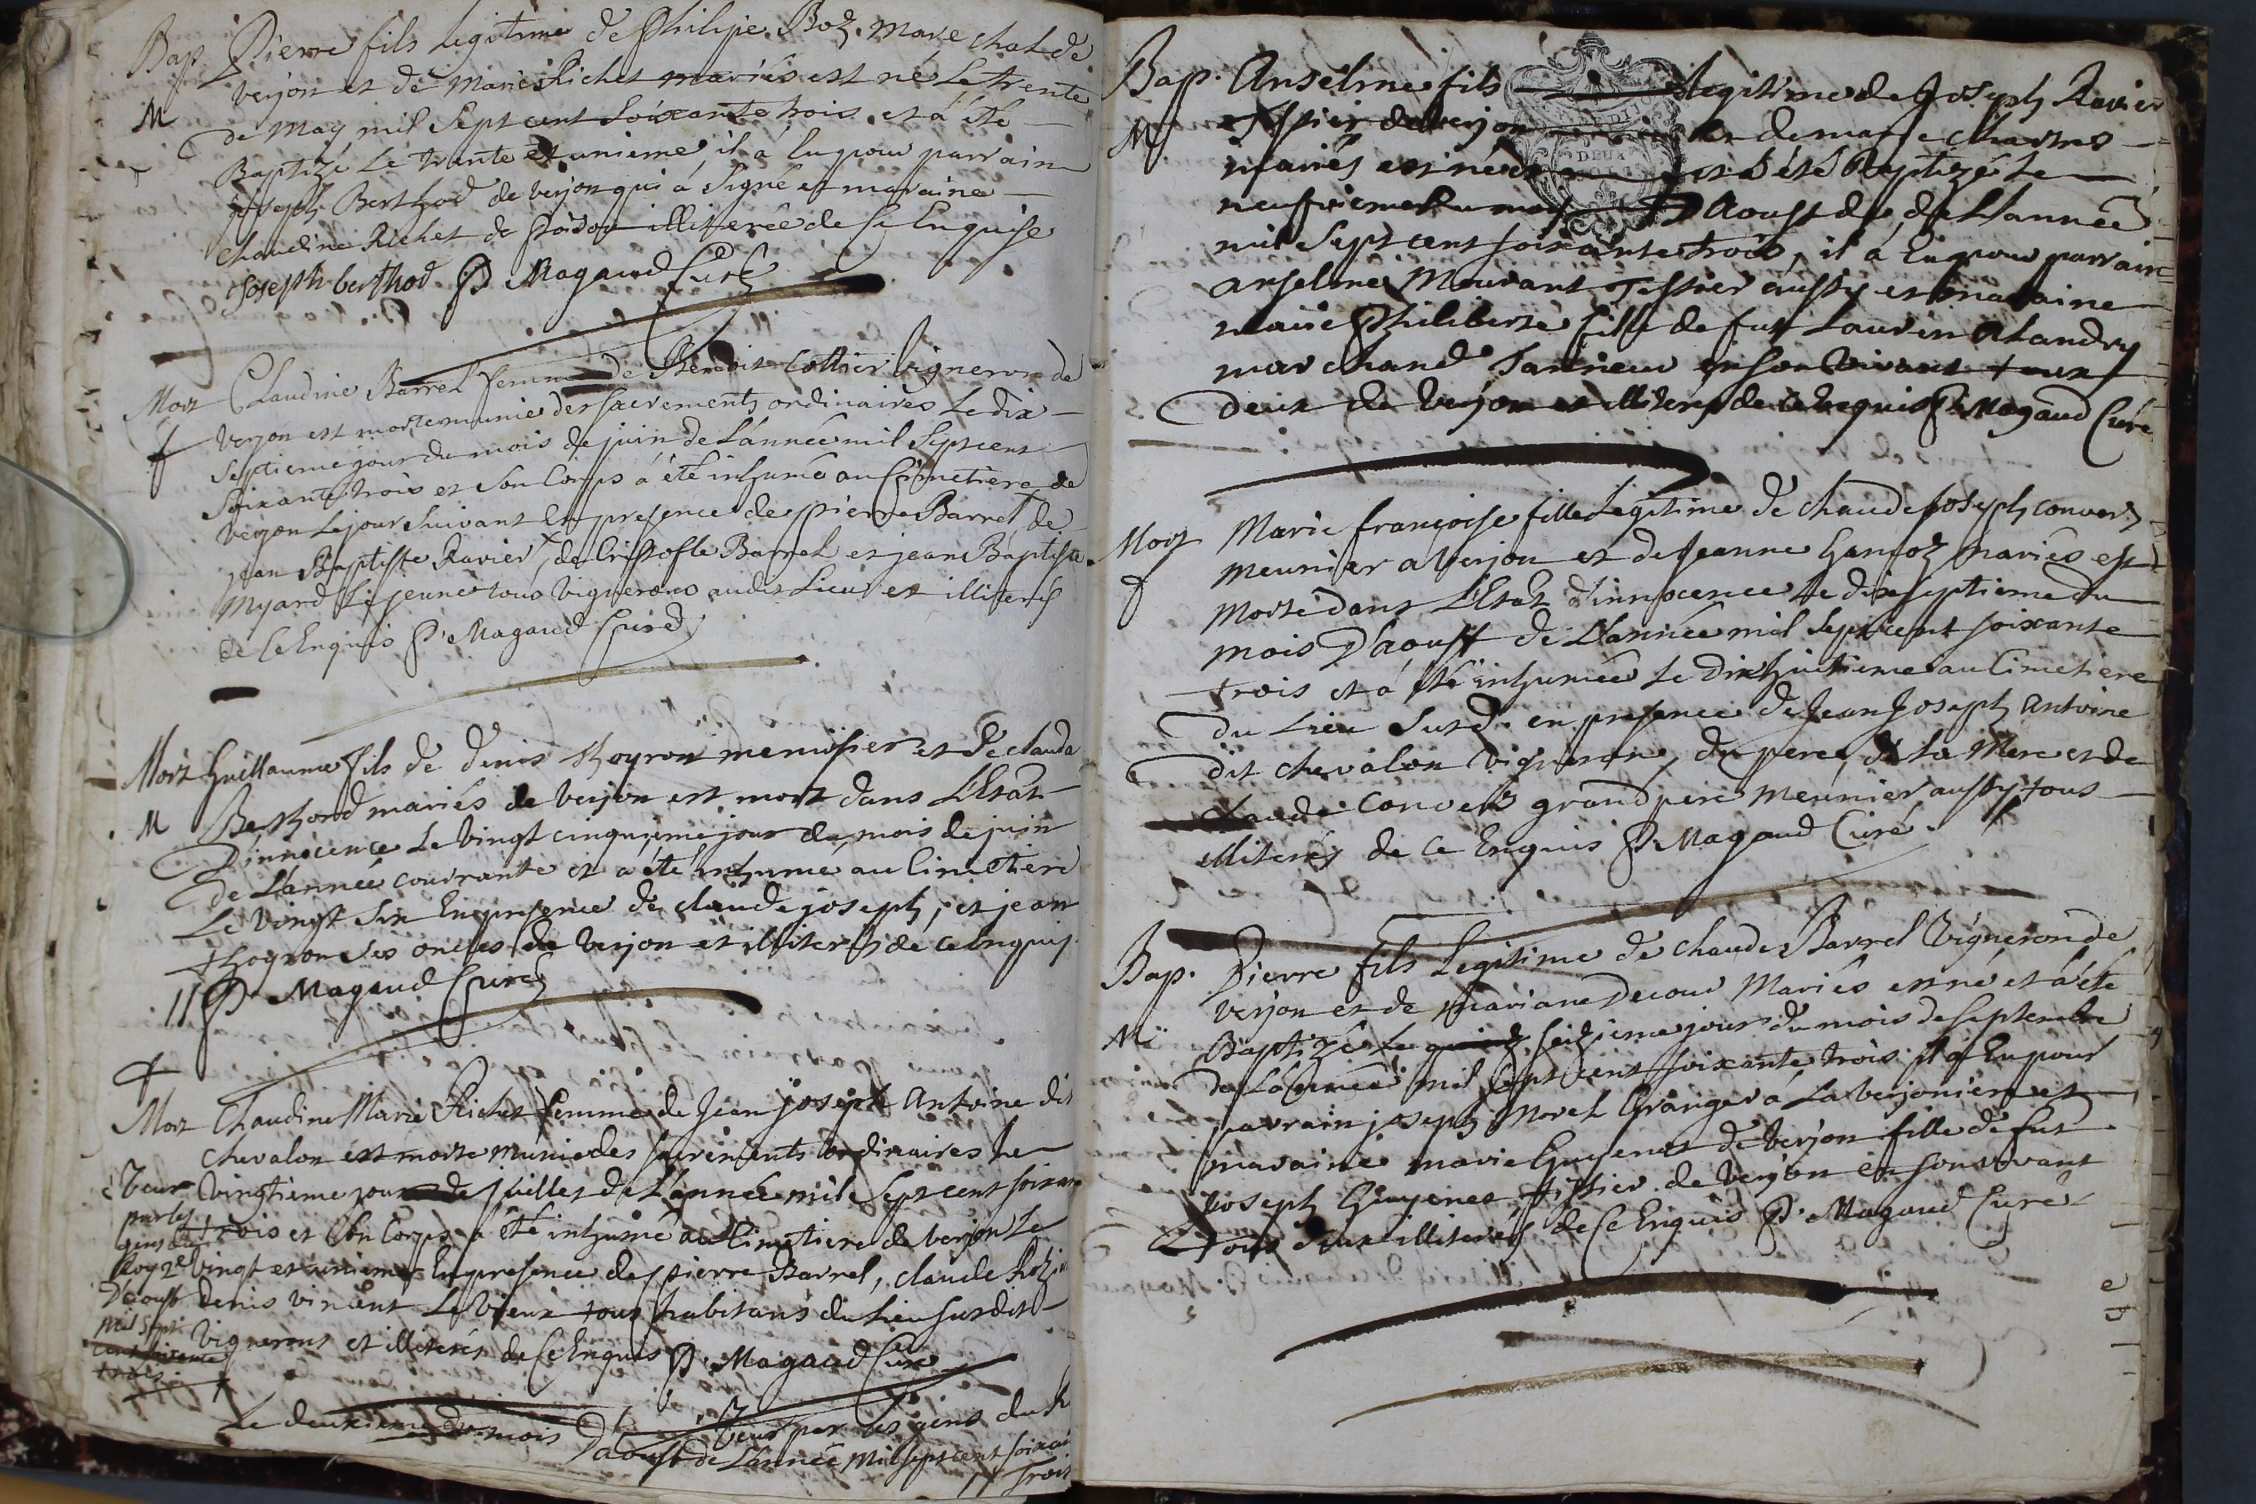 Bap. Pierre fils Legitime de Philipe Boz. Marechal de
M verjon et de Marie Richet mariés est né le trente
de may mil sept cent soixante trois et á été
Baptizé Le trante et unieme, il á Eu pour parrain
joseph Berthod de verjon qui á signé et maraine
Claudine Richet de illiterée de ce Enquise
joseph berthod P. Magaud Curé
Mort Claudine Barrel femme de Benoit Cottier vigneron de
verjon est morte munie des sacrements ordinaires Le dix
septieme jour du mois de juin de L'année mil sept cent
soixante trois et son Corps á été inhumé au Cimetiere de
verjon Le jour suivant En presence de pierre Barrel de
jean Baptiste Ravier, de Cristofle Barrel et jean Baptiste
Myard Le jeune tous vignerons audit Lieu et illiterés
de Ce Enquis P. Magaud Curé
Mort Guillaume fils de denis thoyron menusier et de clauda
M Berthod mariés de verjon est mort dans L'Etat
D'innocence Le vingt cinquieme jour du mois de juin
de L'année courrante et á été inhumé au Cimetiere
Le vingt six En presence de claude joseph, et jean
thoyron ses oncles de verjon et illiterés de ce enquis
P. Magaud Curé
Mort Claudine Marie Richet femme de Jean joseph Antoine dit
chevalon est morte munie des sacrements ordinaires Le
vingtieme jour de juillet de L'année mil sept cent soixante
trois et son Corps á été inhumé au Cimetiere de verjon Le
vingt et unieme En presence de pierre Barrel, claude
denis vincent Le vieux tous habitans du Lieu susdit
vignerons et illiterés de Ce Enquis P. Magaud Curé
Veu
par les
gens du
Roy 2e
D'aoust
mil sept
cent soixante
trois
veu par Les gens du R
Le deuxieme du mois D'aoust de L'année mil sept cent soixan
trois
Bap. Anselme fils legitime de Joseph Ravier
M tissier de verjon et de marie
mariés est né et á été Baptizé Le
neufvieme du mois D'Aoust de L'année
mil sept cent soixante trois, il á Eu pour parrain
anselme Mourant Tissier aussy et maraine
marie Philiberte fille de fut Laurin Alandry
marchand Tanneur en son vivant tous
deux de verjon et illiterés de ce Enquis P. Magaud Curé
DEUX
Mort Marie françoise fille Legitime de claude joseph convert
meunier a verjon et de Jeanne mariés est
morte dans L'Etat d'innocence Le dixseptieme du
mois D'aoust de L'année mil sept cent soixante
trois et á été inhumée Le dixhuitieme au Cimetiere
du Lieu susd. en presence de Jean Joseph Antoine
dit chevalon vigneron, du pere, de La Mere et de
claude convert grand pere meunier aussy tous
illiterés de Ce Enquis P. Magaud Curé.
Bap. Pierre fils Legitime de claude Barrel vigneron de
verjon et de mariane Decour Mariés est né et á été
M Baptizé Le seizieme jour du mois de septembre
de L'année mil sept cent soixante trois il á Eu pour
parrain joseph Morel Granger á La verjoniere et
maraine marie Guyenet de verjon fille de fut
joseph Guyenet, tissier de verjon en son vivant
Tous deux illiterés de Ce Enquis P. Magaud Curé